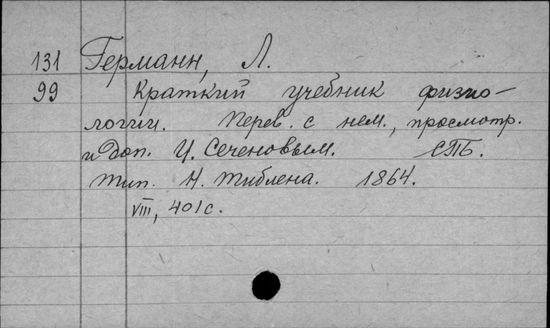 131 Германн, Л.
99 Краткий учебник физио-
логии. Перев. с нем., просмотр.
и доп. И. Сеченовым. СПБ.
Тип. Н. Тиблена. 1864.
VIII, 401 с.